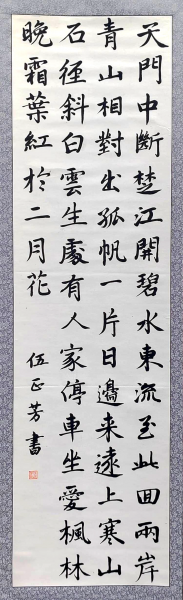 天門中斷楚江開碧水東流至此回兩岸
青山相對出孤帆一片日邊来遠上寒山
石徑斜白雲生處有人家停車坐愛楓林
晚霜葉紅於二月花
伍正芳書